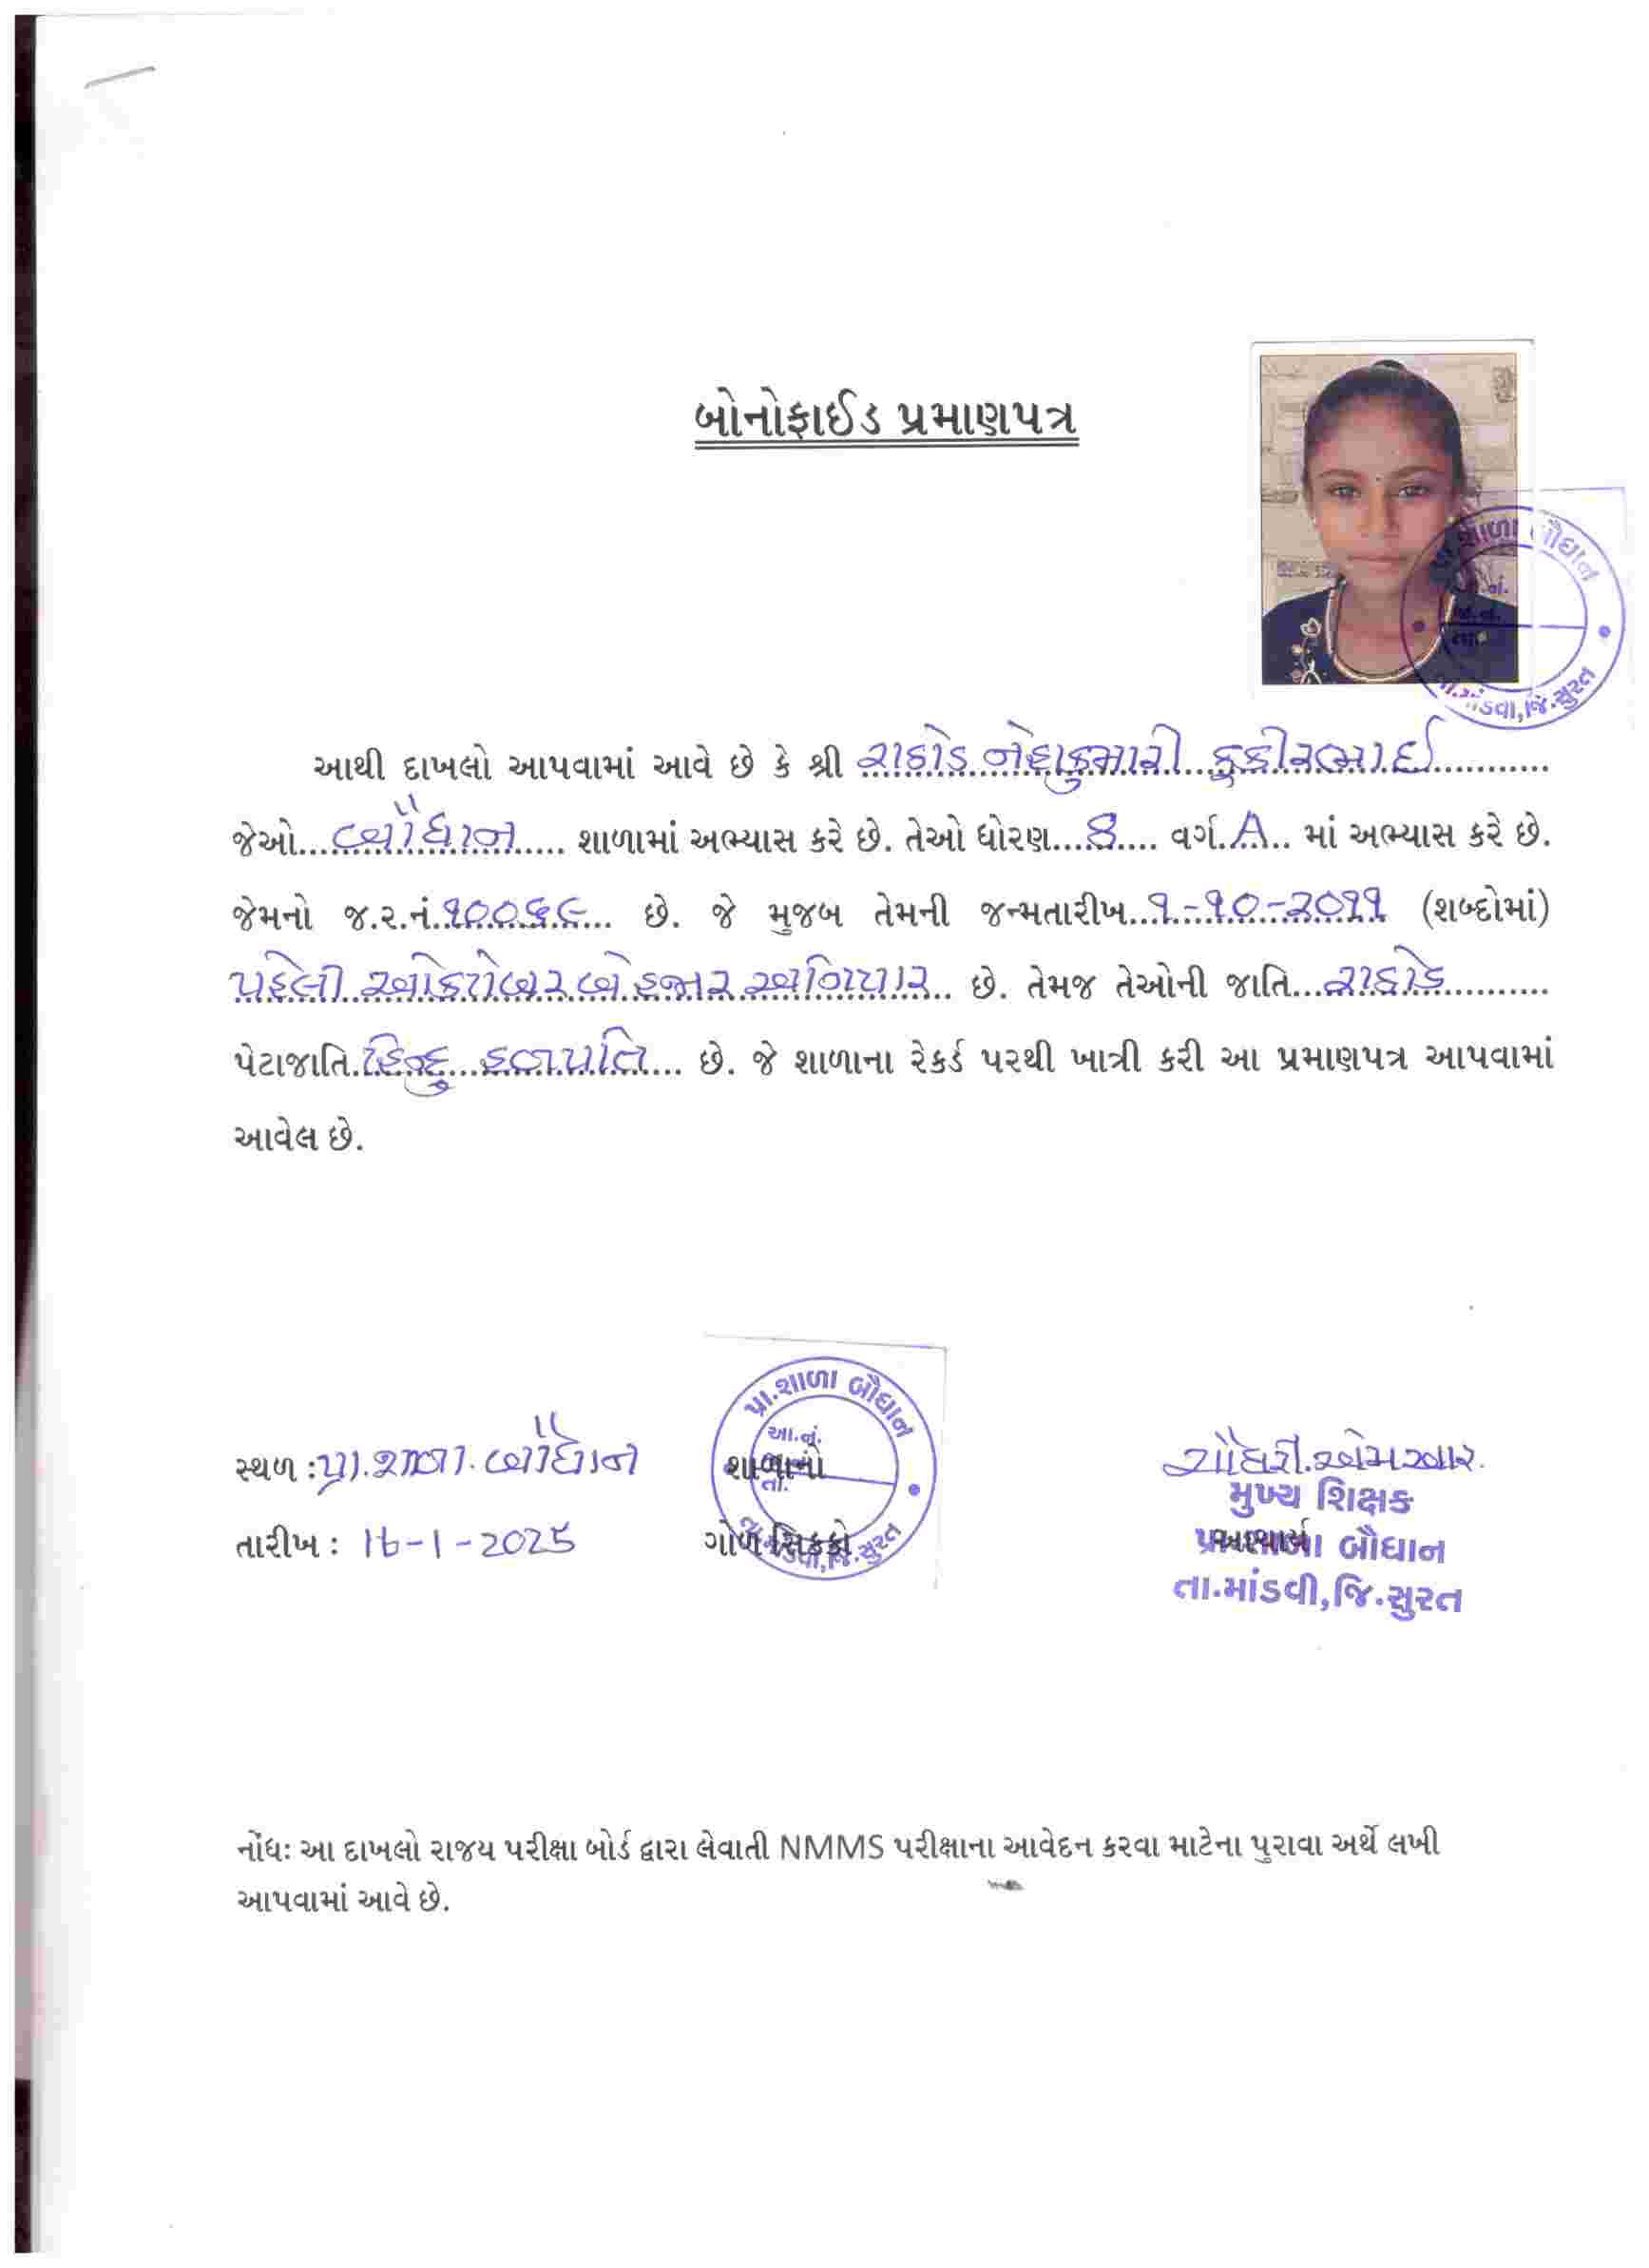 બોનોફાઈડ પ્રમાણપત્ર
પ્રા.શાળા બૌધાન
તા.માંડવી,જિ.સુરત
આથી દાખલો આપવામાં આવે છે કે શ્રી રાઠોડ નેહાકુમારી ફકીરભાઈ
જેઓ...બૌધાન..... શાળામાં અભ્યાસ કરે છે. તેઓ ધોરણ...8.... વર્ગ..A.. માં અભ્યાસ કરે છે.
જેમનો જ.ર.નં..૧૦૦૬૯... છે. જે મુજબ તેમની જન્મતારીખ...૧-૧૦-૨૦૧૧ (શબ્દોમાં)
પહેલી ઓક્ટોબર બે હજાર અગિયાર.. છે. તેમજ તેઓની જાતિ...રાઠોડ..........
પેટાજાતિ.હિન્દુ હળપતિ... છે. જે શાળાના રેકર્ડ પરથી ખાત્રી કરી આ પ્રમાણપત્ર આપવામાં
આવેલ છે.
પ્રા.શાળા બૌધાન
આ.નં.
તા.
તા.માંડવી,જિ.સુરત
સ્થળ : પ્રા.શાળા. બૌધાન
શાળાનો
ચૌધરી.એમ.આર.
મુખ્ય શિક્ષક
તારીખ : 16-1-2025
ગોળ સિક્કો
આચાર્ય
પ્રા.શાળા બૌધાન
તા.માંડવી,જિ.સુરત
નોંધઃ આ દાખલો રાજય પરીક્ષા બોર્ડ દ્વારા લેવાતી NMMS પરીક્ષાના આવેદન કરવા માટેના પુરાવા અર્થે લખી
આપવામાં આવે છે.